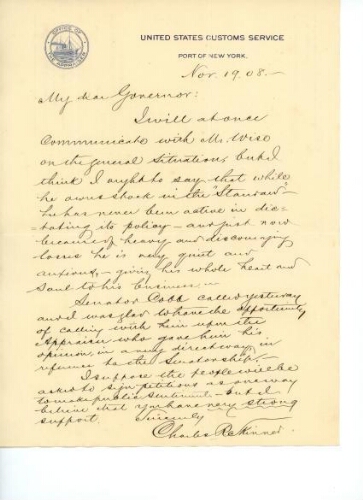 OFFICE OF
UNITED STATES CUSTOMS SERVICE
PORT OF NEW YORK.
Nov. 19. 08. —
My dear Governor:
I will at once
Communicate with Mr. Wise
on the general situation, but I
think I ought to say that while
he owns stock in the "Standard" -
he has never been active in dic-
tating its policy - and just now
because of heavy and discouraging
losses he is very quiet and
anxious, - giving his whole heart and
soul to his business. —
Senator Cobb called yesterday
and I was glad to have the opportunity
of calling with him upon the
Appraiser who gave him his
opinion, in a very direct way, in
reference to the Senatorship. -
I suppose the people will be
asked to sign petitions as one way
to make public sentiment - but I
believe that you have very strong
support. Sincerely
Charles R. Skinner